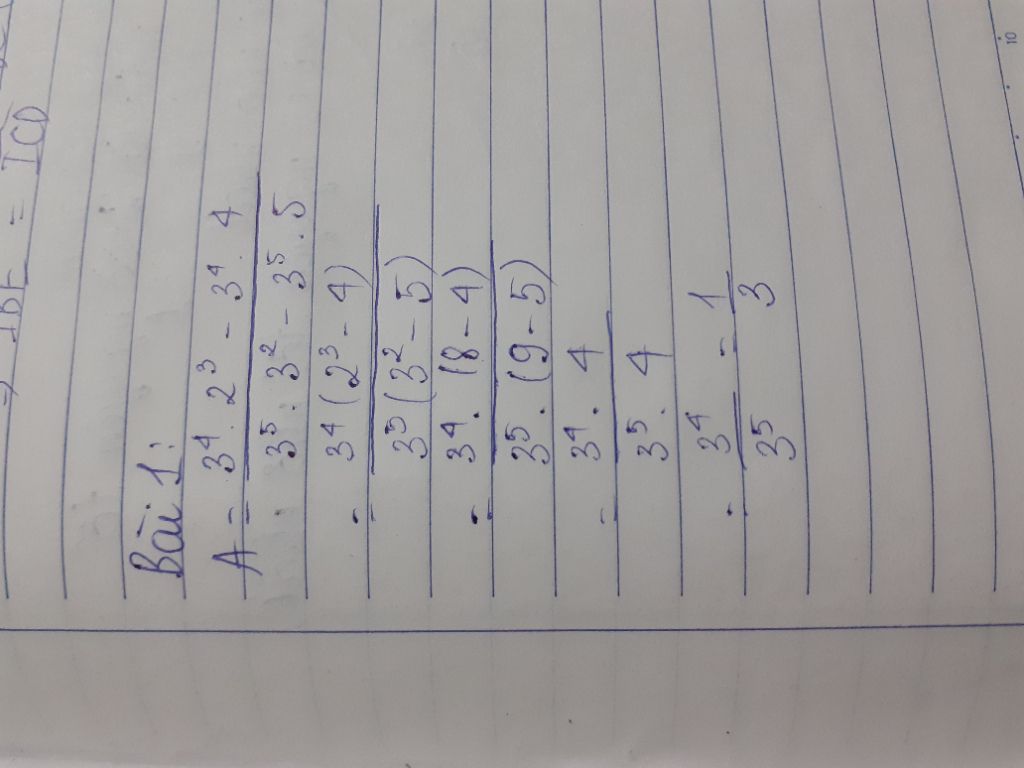 => IBF = ICD
Bài 1:
A = 3⁴. 2³ - 3⁴. 4
3⁵. 3² - 3⁵. 5
= 3⁴ (2³ - 4)
3⁵ (3² - 5)
= 3⁴. (8 - 4)
3⁵. (9 - 5)
= 3⁴. 4
3⁵. 4
= 3⁴ = 1
3⁵ 3
10